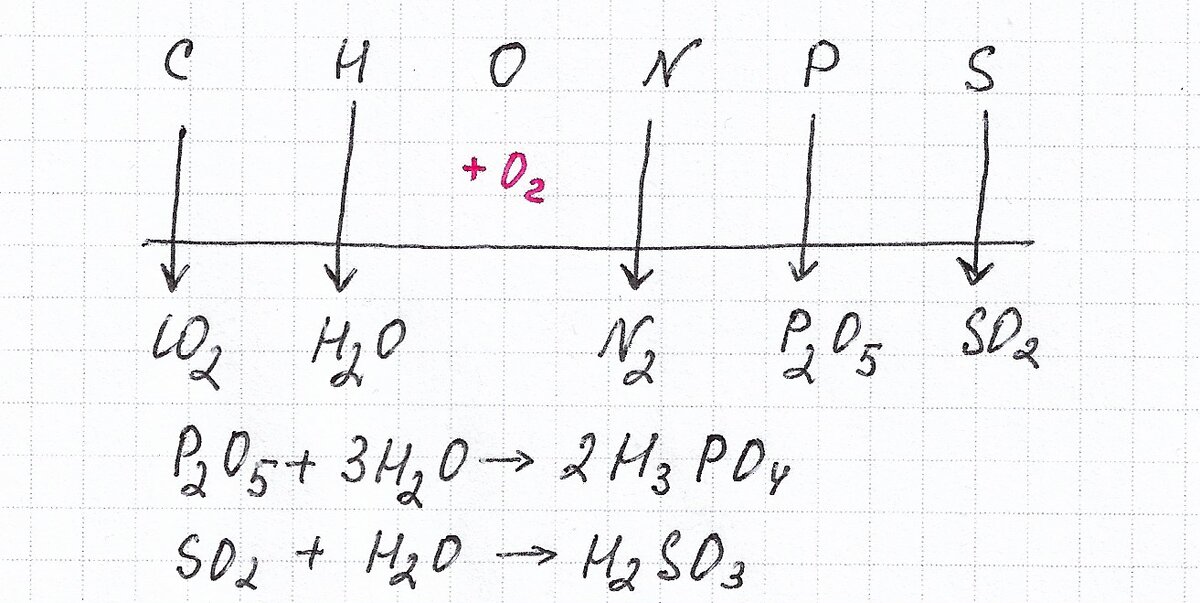 C H O N P S
+ O₂
CO₂ H₂O N₂ P₂O₅ SO₂
P₂O₅ + 3H₂O → 2H₃PO₄
SO₂ + H₂O → H₂SO₃